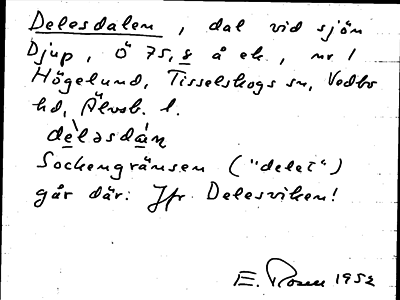 Delesdalen, dal vid sjön
Djup, Ö 75,8 å ek., nr 1
Högelund, Tisselskogs sn, Vedbo
hd, Älvsb. l.
de̲ləsda̲n
Sockengränsen ("delet")
går där. Jfr Delesviken!
E. Rosen 1952